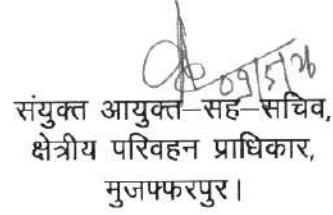 09/5/26
संयुक्त आयुक्त–सह–सचिव,
क्षेत्रीय परिवहन प्राधिकार,
मुजफ्फरपुर।